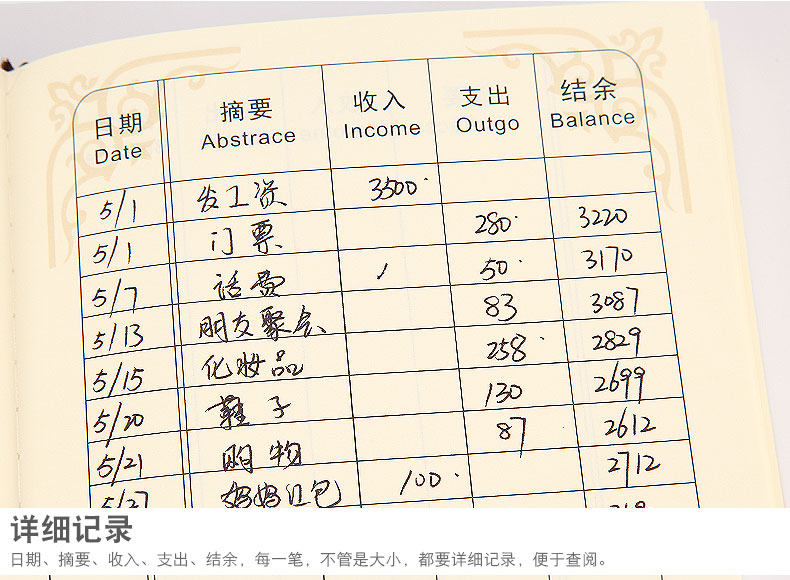 日期 摘要 收入 支出 结余
Date Abstrace Income Outgo Balance
5/1 发工资 3500.
5/1 门票 280. 3220
5/7 话费 50. 3170
5/13 朋友聚会 83 3087
5/15 化妆品 258. 2829
5/20 鞋子 130 2699
5/21 购物 87 2612
5/27 妈妈红包 100. 2712
详细记录
日期、摘要、收入、支出、结余，每一笔，不管是大小，都要详细记录，便于查阅。